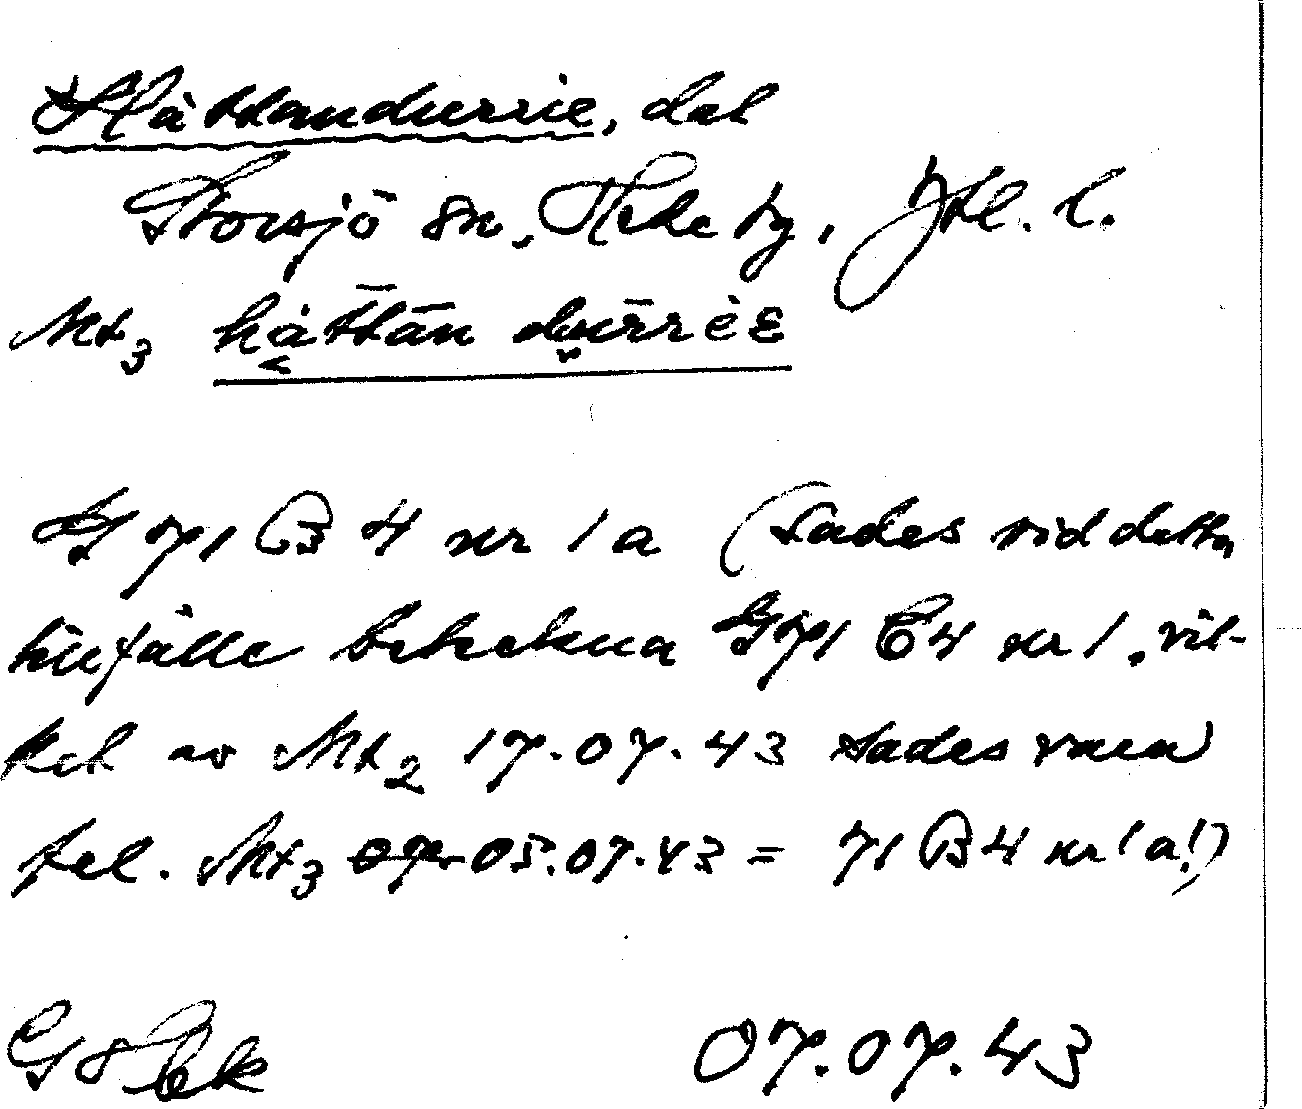 Håttandurrie, del
Storsjö sn, by, Jtl. l.
Mt3 håttān dūrrèɛ
G 71 B 4 nr 1 a (Sades vid detta
tillfälle beteckna G 71 C 4 nr 1, vil-
ket av Mt2 17.07.43 sades vara
fel. Mt3 05.07.43 = 71 B 4 nr 1 a!)
07.07.43